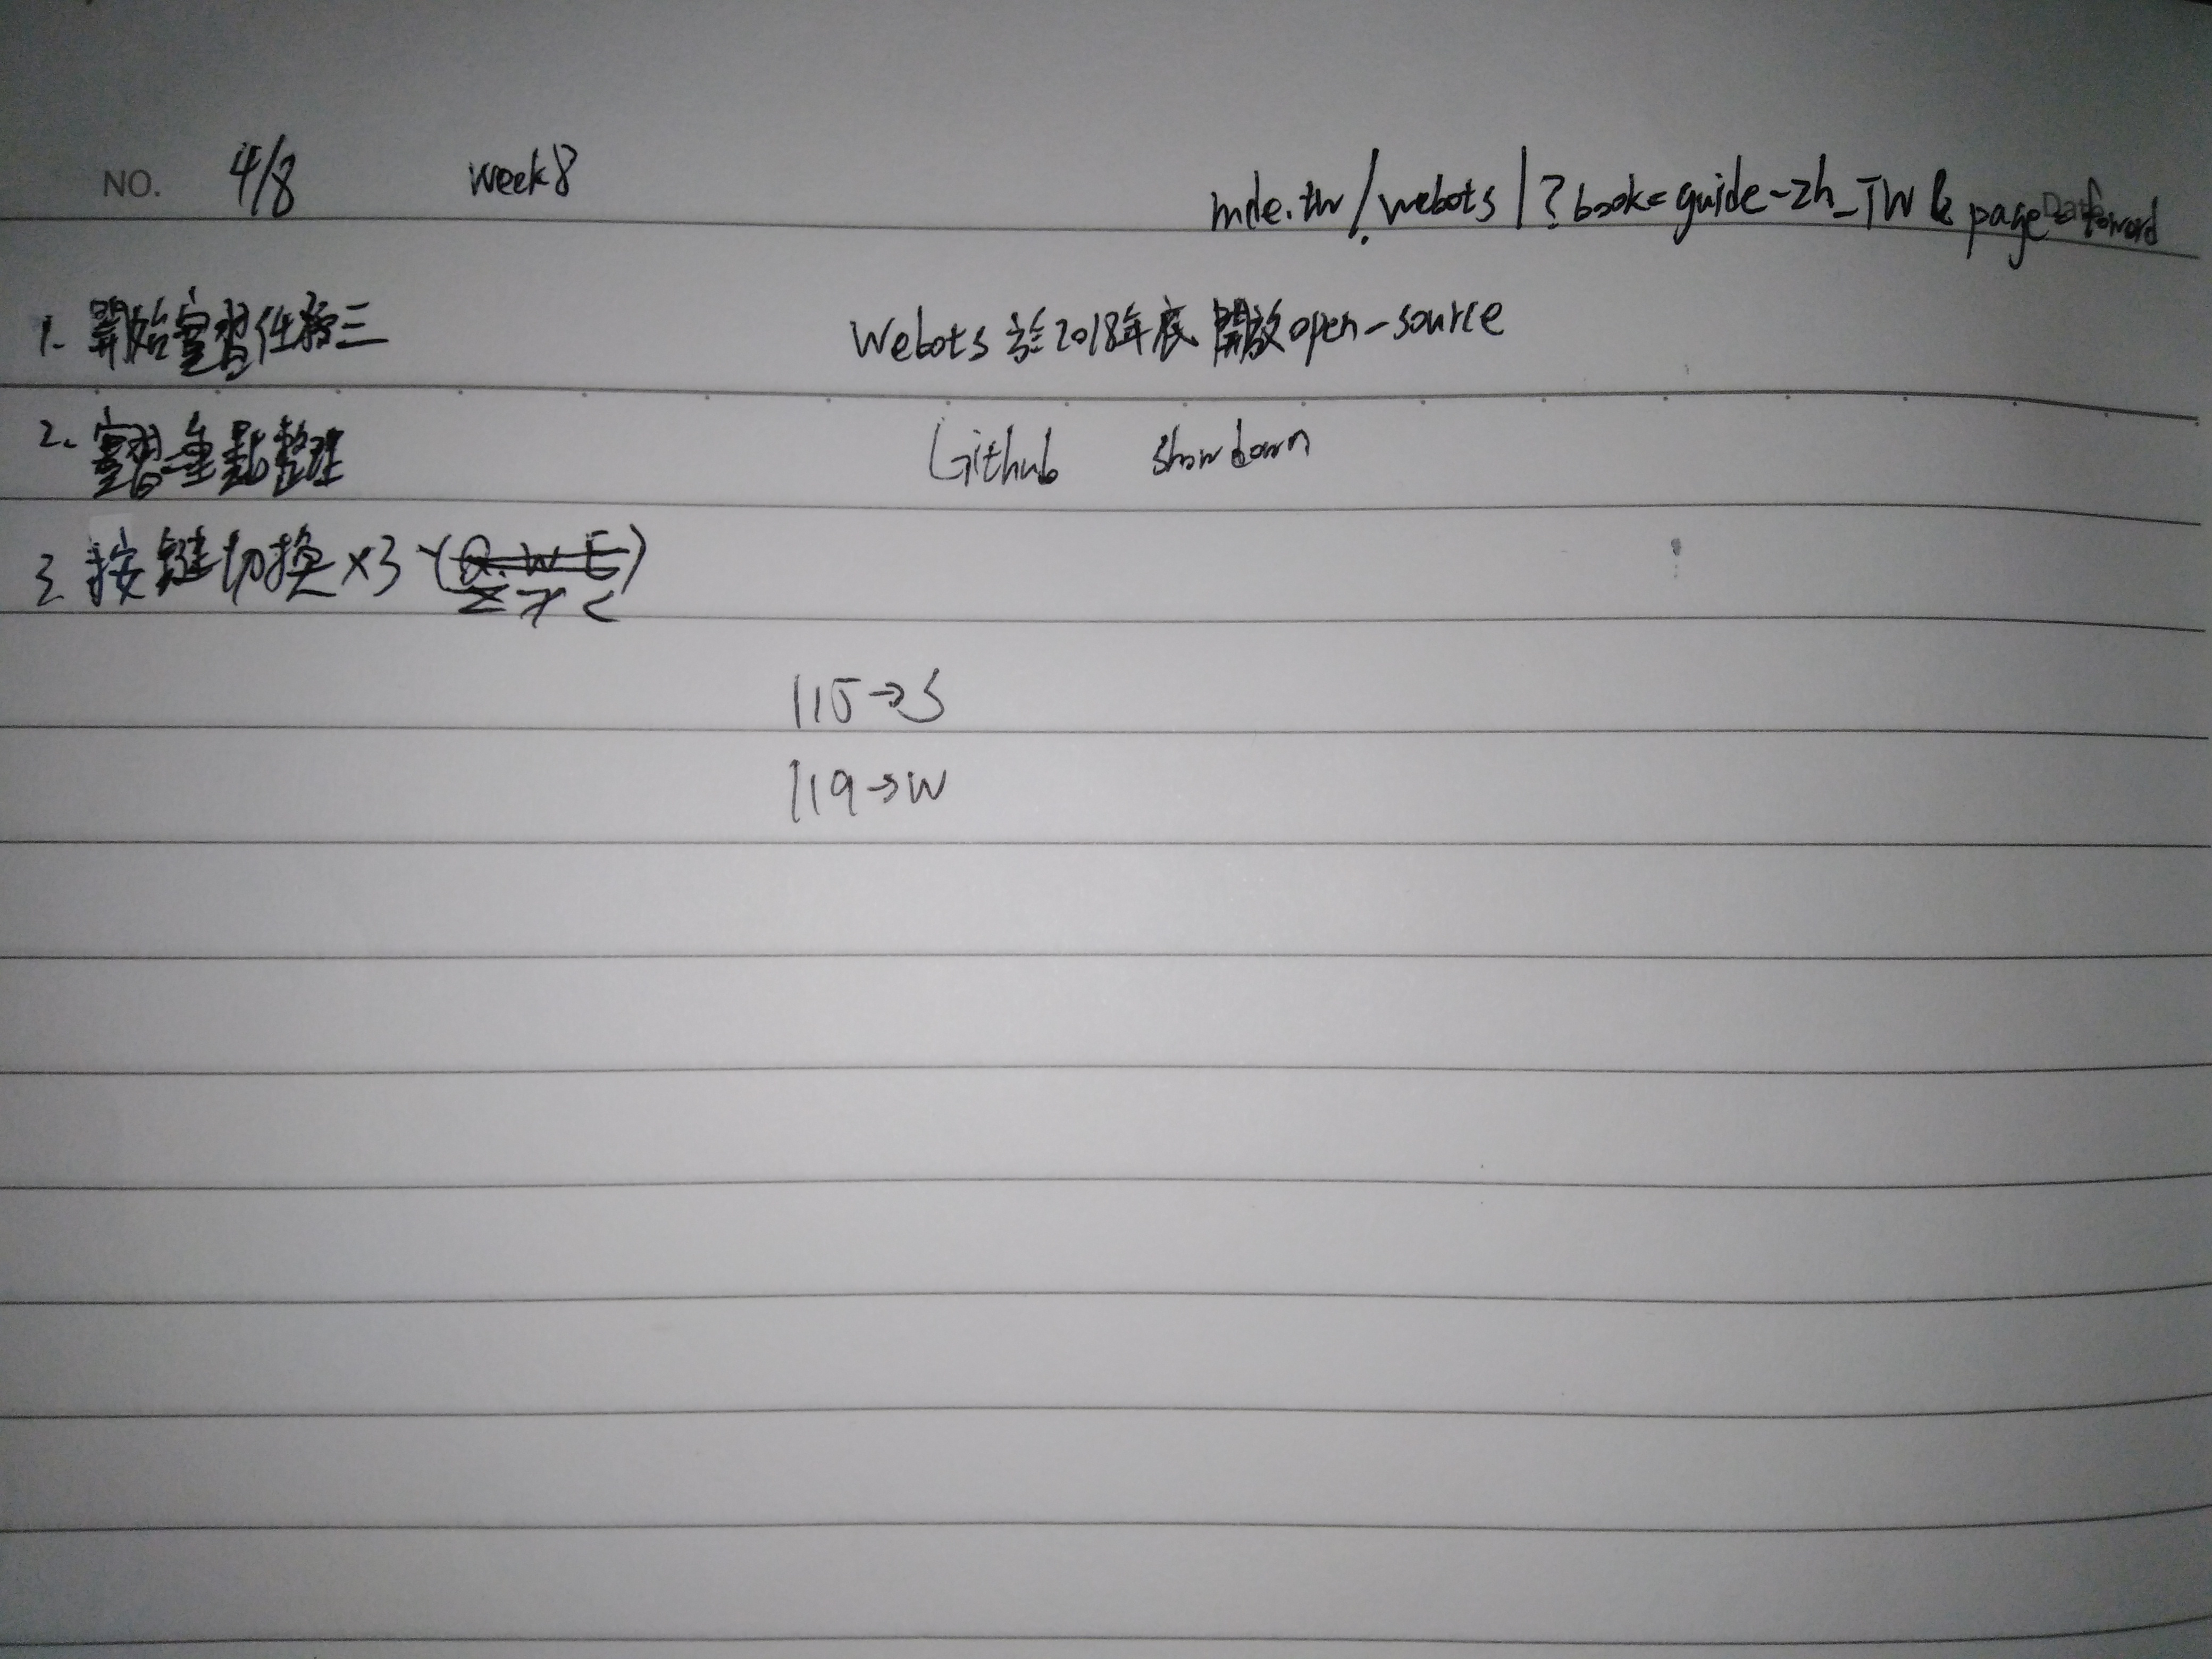 NO. 4/8 week8 mde.tw/webots/?book=guide-zh_TW&page=foword
1. 開始實習任務三 Webots 於2018年底 開放open-source
2. 實習二重點整理 Github showdown
3. 按鍵切換×3 (Q.W E)
Z x c
115→S
119→W